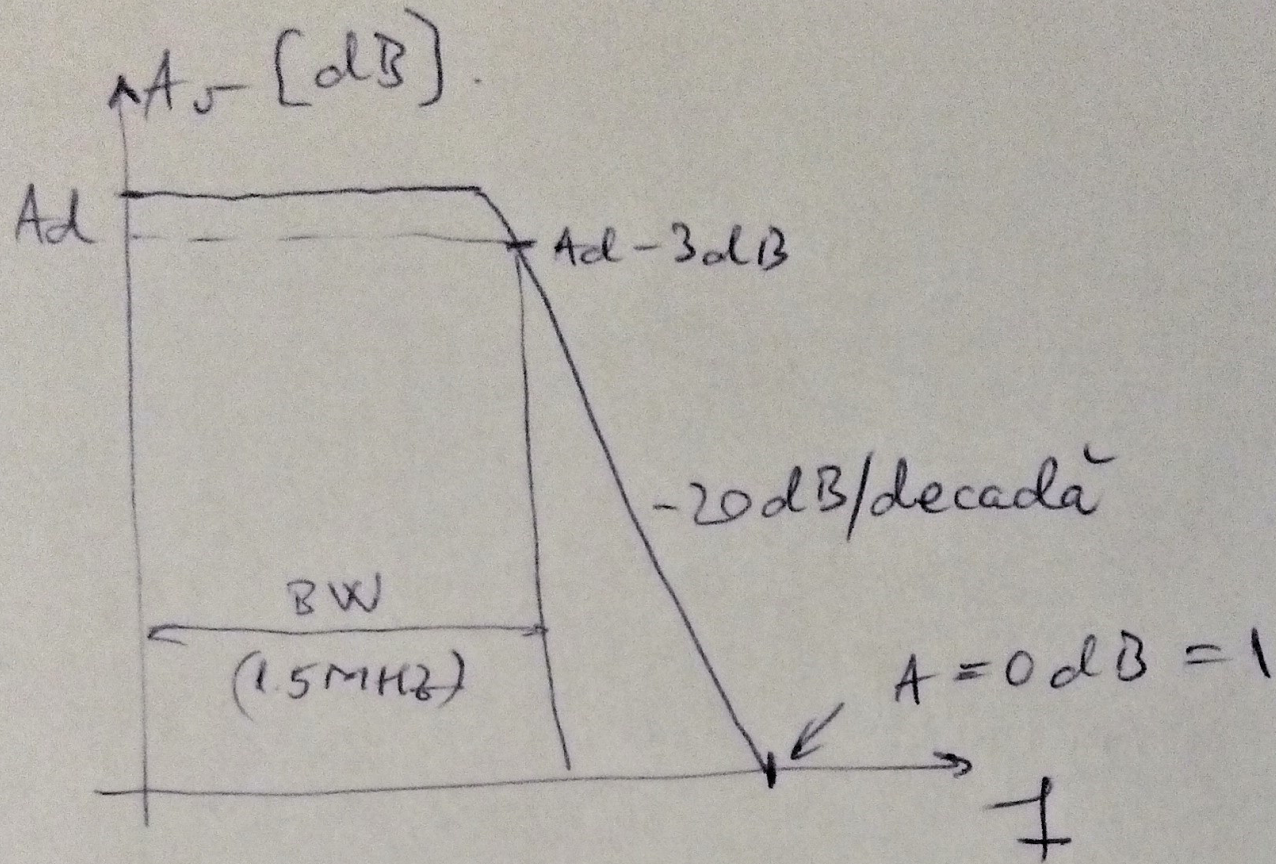 Av [dB].
Ad
Ad - 3dB
-20dB/decadă
BW
(1.5MHz)
A = 0dB = 1
f